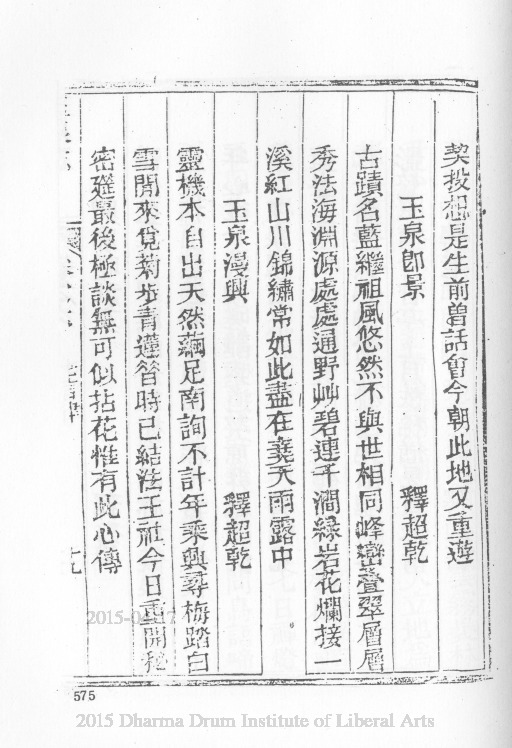 契投想是生前曾話會今朝此地又重遊
玉泉卽景 釋超乾
古蹟名藍繼祖風悠然不與世相同峰巒疊翠層層
秀法海淵源處處通野艸碧連千澗綠岩花爛接一
溪紅山川錦繡常如此盡在堯天雨露中
玉泉漫興 釋超乾
靈機本自出天然繭足南詢不計年乘興尋梅踏白
雪閒來覓菊步青蓮昝時已結法王社今日重開秘
密筵最後極談無可似拈花惟有此心傳
十九
575
2015 Dharma Drum Institute of Liberal Arts